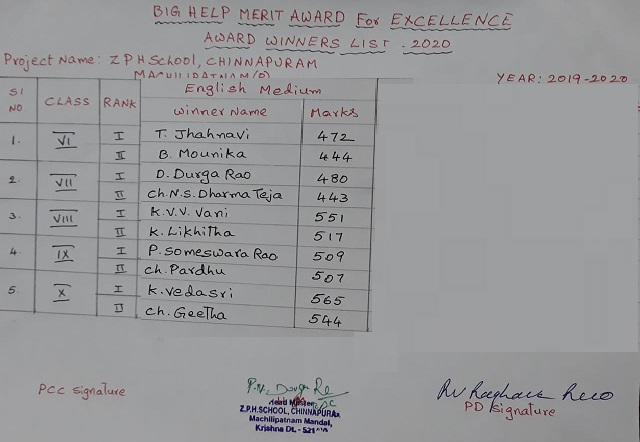 BIG HELP MERIT AWARD FOR EXCELLENCE
AWARD WINNERS LIST . 2020
Project Name: Z P H School, CHINNAPURAM
MACHILIPATNAM(D)
YEAR: 2019-2020
Sl NO CLASS RANK English Medium
Winner Name Marks
1. VI I T. Jhahnavi 472
II B. Mounika 444
2. VII I D. Durga Rao 480
II Ch.N.S. Dharma Teja 443
3. VIII I K.V.V. Vani 551
II K. Likhitha 517
4 IX I P. Someswara Rao 509
II Ch. Pardhu 507
5. X I K. Vedasri 565
II Ch. Geetha 544
PCC Signature
Head Master
Z.P.H.SCHOOL, CHINNAPURAM
Machilipatnam Mandal,
Krishna Dt. - 521
PD Signature